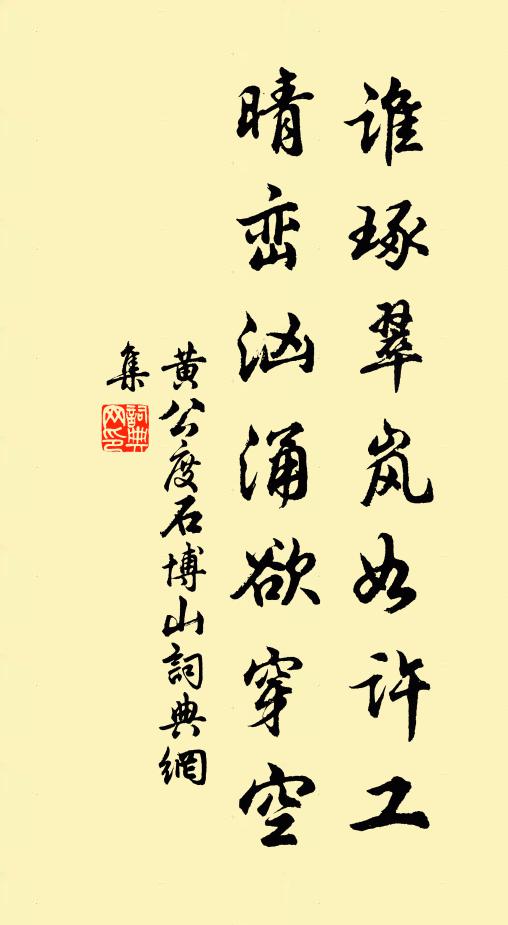 谁琢翠岚如许工
晴峦汹涌欲穿空
黄公度石博山詞典網
集
詞典
网印